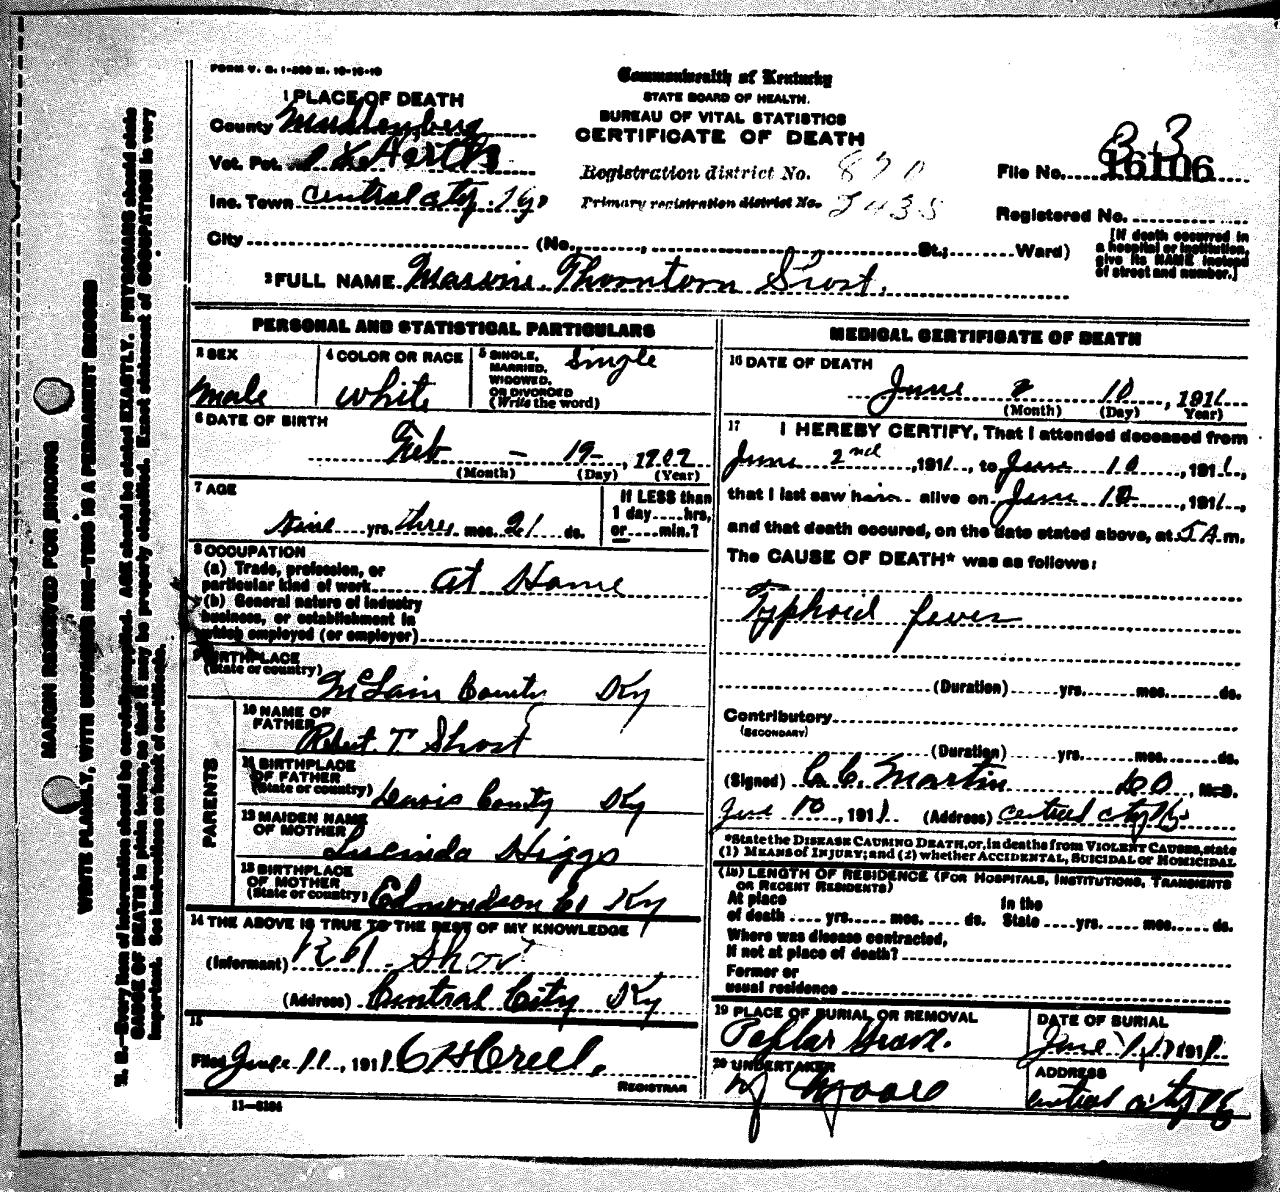 FORM V. S. 1-500 M. 10-16-10
Commonwealth of Kentucky
STATE BOARD OF HEALTH.
BUREAU OF VITAL STATISTICS
CERTIFICATE OF DEATH
1 PLACE OF DEATH
County Muhlenberg
Vot. Pct.
Inc. Town Central City Ky
Registration district No. 870
Primary registration district No. 2435
File No. 16106
33
Registered No.
City (No., , St.; Ward)
[If death occurred in
a hospital or institution,
give its NAME instead
of street and number.]
2 FULL NAME Thorntorn Short.
PERSONAL AND STATISTICAL PARTICULARS
3 SEX
male
4 COLOR OR RACE
white
5 SINGLE,
MARRIED,
WIDOWED,
OR DIVORCED
(Write the word)
Single
6 DATE OF BIRTH
Feb - 19 - , 1902
(Month) (Day) (Year)
7 AGE
Nine yrs. three mos. 21 ds.
If LESS than
1 day....hrs,
or....min.?
8 OCCUPATION
(a) Trade, profession, or
particular kind of work At Home
(b) General nature of industry
business, or establishment in
which employed (or employer)
9 BIRTHPLACE
(State or country)
McLain County Ky
PARENTS
10 NAME OF
FATHER
Robert T Short
11 BIRTHPLACE
OF FATHER
(State or country) Davis County Ky
12 MAIDEN NAME
OF MOTHER
Lucinda Higgs
13 BIRTHPLACE
OF MOTHER
(State or country) Edmondson Co Ky
14 THE ABOVE IS TRUE TO THE BEST OF MY KNOWLEDGE
(Informant) Short
(Address) Central City Ky
15
Filed June 11, 1911
REGISTRAR
11-8184
MEDICAL CERTIFICATE OF DEATH
16 DATE OF DEATH
June 10, 1911
(Month) (Day) Year)
17 I HEREBY CERTIFY, That I attended deceased from
June 2nd, 1911, to June 10, 1911,
that I last saw him alive on June 10, 1911,
and that death occured, on the date stated above, at 5 A.m.
The CAUSE OF DEATH* was as follows:
Typhoid fever
(Duration) yrs. mos. ds.
Contributory
(SECONDARY)
(Duration) yrs. mos. ds.
(Signed) C. C. Martin M.D.
June 10, 1911 (Address) Central City Ky
*State the DISEASE CAUSING DEATH, or, in deaths from VIOLENT CAUSES, state
(1) MEANS of INJURY; and (2) whether ACCIDENTAL, SUICIDAL or HOMICIDAL
(18) LENGTH OF RESIDENCE (FOR HOSPITALS, INSTITUTIONS, TRANSIENTS
OR RECENT RESIDENTS)
At place
of death yrs. mos. ds.
In the
State yrs. mos. ds.
Where was disease contracted,
If not at place of death?
Former or
usual residence
19 PLACE OF BURIAL OR REMOVAL
Poplar Grove.
DATE OF BURIAL
June 11 1911
20 UNDERTAKER
Moore
ADDRESS
Central City Ky
MARGIN RESERVED FOR BINDING
WRITE PLAINLY, WITH UNFADING INK—THIS IS A PERMANENT RECORD
N. B.—Every item of information should be carefully supplied. AGE should be stated EXACTLY. PHYSICIANS should state
CAUSE OF DEATH in plain terms, so that it may be properly classified. Exact statement of OCCUPATION is very
important. See instructions on back of certificate.